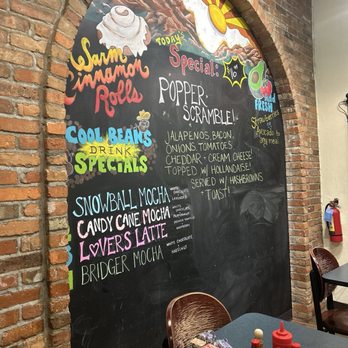 Warm
Cinnamon
Rolls
COOL BEANS
DRINK
SPECIALS
SNOWBALL MOCHA
CANDY CANE MOCHA
LOVERS LATTE
WHITE CHOCOLATE,
BRIDGER MOCHA
HAZELNUT
TODAY'S
Special:
POPPER
SCRAMBLE!
JALAPENOS, BACON,
ONIONS, TOMATOES,
CHEDDAR + CREAM CHEESE
TOPPED W/ HOLLANDAISE!
SERVED W/ HASHBROWNS
+ TOAST!
FRESH